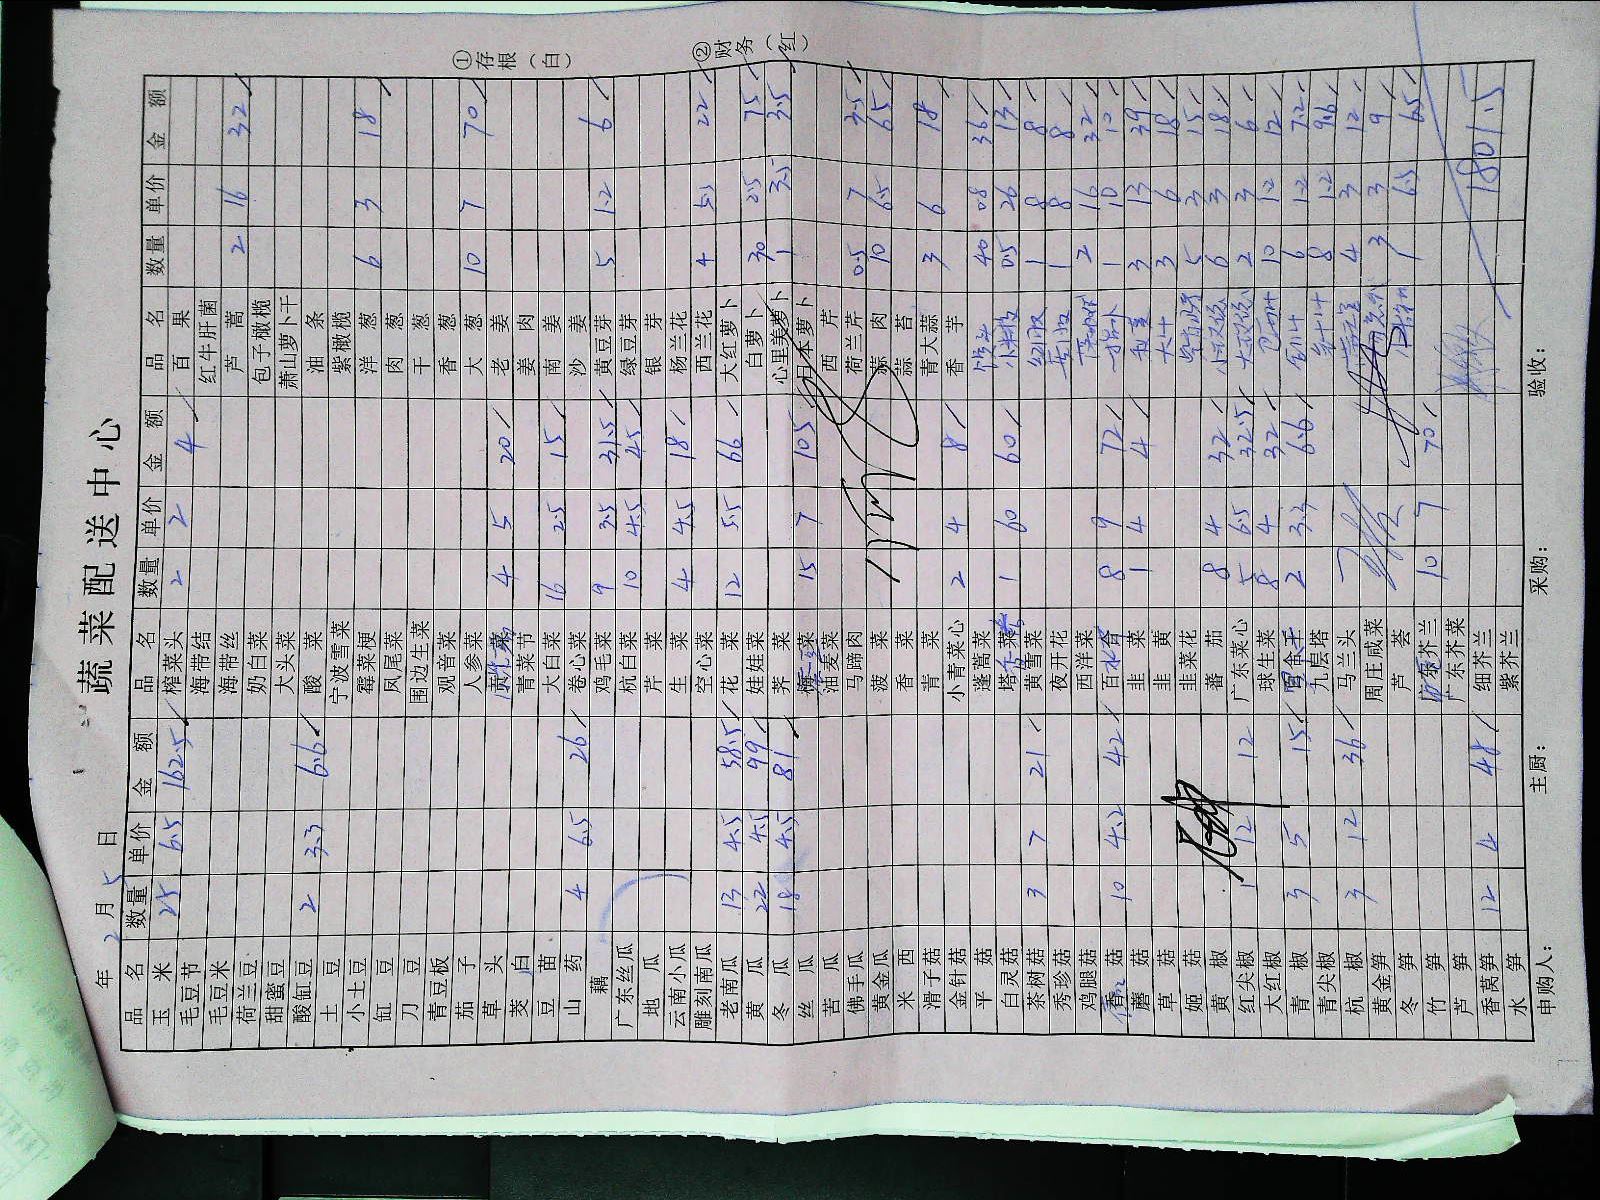 蔬菜配送中心
年 2 月 5 日
品名 数量 单价 金额 品名 数量 单价 金额 品名 数量 单价 金额
玉米 25 6.5 162.5 榨菜头 2 2 4 百果
毛豆节 海带结 红牛肝菌
毛豆米 海带丝 芦蒿 2 16 32
荷兰豆 奶白菜 包子橄榄
甜蜜豆 大头菜 萧山萝卜干
酸缸豆 2 3.3 6.6 酸菜 油条
土豆 宁波雪菜 紫橄榄
小土豆 霉菜梗 洋葱 6 3 18
缸豆 凤尾菜 肉葱
刀豆 围边生菜 干葱
青豆板 观音菜 香葱
茄子 人参菜 大葱 10 7 70
草头 4 5 20 老姜
茭白 青菜节 姜肉
豆苗 大白菜 2.5 15 南姜
山药 4 6.5 26 卷心菜 沙姜
藕 鸡毛菜 9 3.5 31.5 黄豆芽 5 1.2 6
广东丝瓜 杭白菜 10 4.5 45 绿豆芽
地瓜 芹菜 银芽
云南小瓜 生菜 4 4.5 18 杨兰花
雕刻南瓜 空心菜 西兰花 4 5.5 22
老南瓜 13 4.5 58.5 花菜 12 5.5 66 大红萝卜
黄瓜 22 4.5 99 娃娃菜 白萝卜 30 2.5 75
冬瓜 18 4.5 81 荠菜 心里美萝卜 1 3.5 3.5
丝瓜 15 7 105 日本萝卜
苦瓜 油麦菜 西芹
佛手瓜 马蹄肉 荷兰芹 0.5 7 3.5
黄金瓜 菠菜 蒜肉 10 6.5 65
米西 香菜 蒜苔
滑子菇 青菜 青大蒜 3 6 18
金针菇 小青菜心 2 4 8 香芋
平菇 蓬蒿菜 40 36
白灵菇 塔菜 1 60 60 小米椒 0.5 26 13
茶树菇 3 7 21 黄雪菜 1 8 8
秀珍菇 夜开花 1 8 8
鸡腿菇 西洋菜 2 16 32
香菇 10 4.2 42 百合 8 9 72 1 10 10
蘑菇 韭菜 1 4 4 3 13 39
草菇 韭黄 大叶 3 6 18
姬菇 韭菜花 5 3 15
黄椒 番茄 8 4 32 6 3 18
红尖椒 1 12 12 广东菜心 5 6.5 32.5 2 3 6
大红椒 球生菜 8 4 32 10 1.2 12
青椒 3 5 15 2 3.3 6.6 6 1.2 7.2
青尖椒 九层塔 8 1.2 9.6
杭椒 3 12 36 马兰头 4 3 12
黄金笋 周庄咸菜 3 3 9
冬笋 芦荟 1 6.5 6.5
竹笋 芥兰 10 7 70
芦笋 广东芥菜
香莴笋 12 4 48 细芥兰 1801.5
水笋 紫芥兰
申购人： 主厨： 采购： 验收：
①存根（白）
②财务（红）